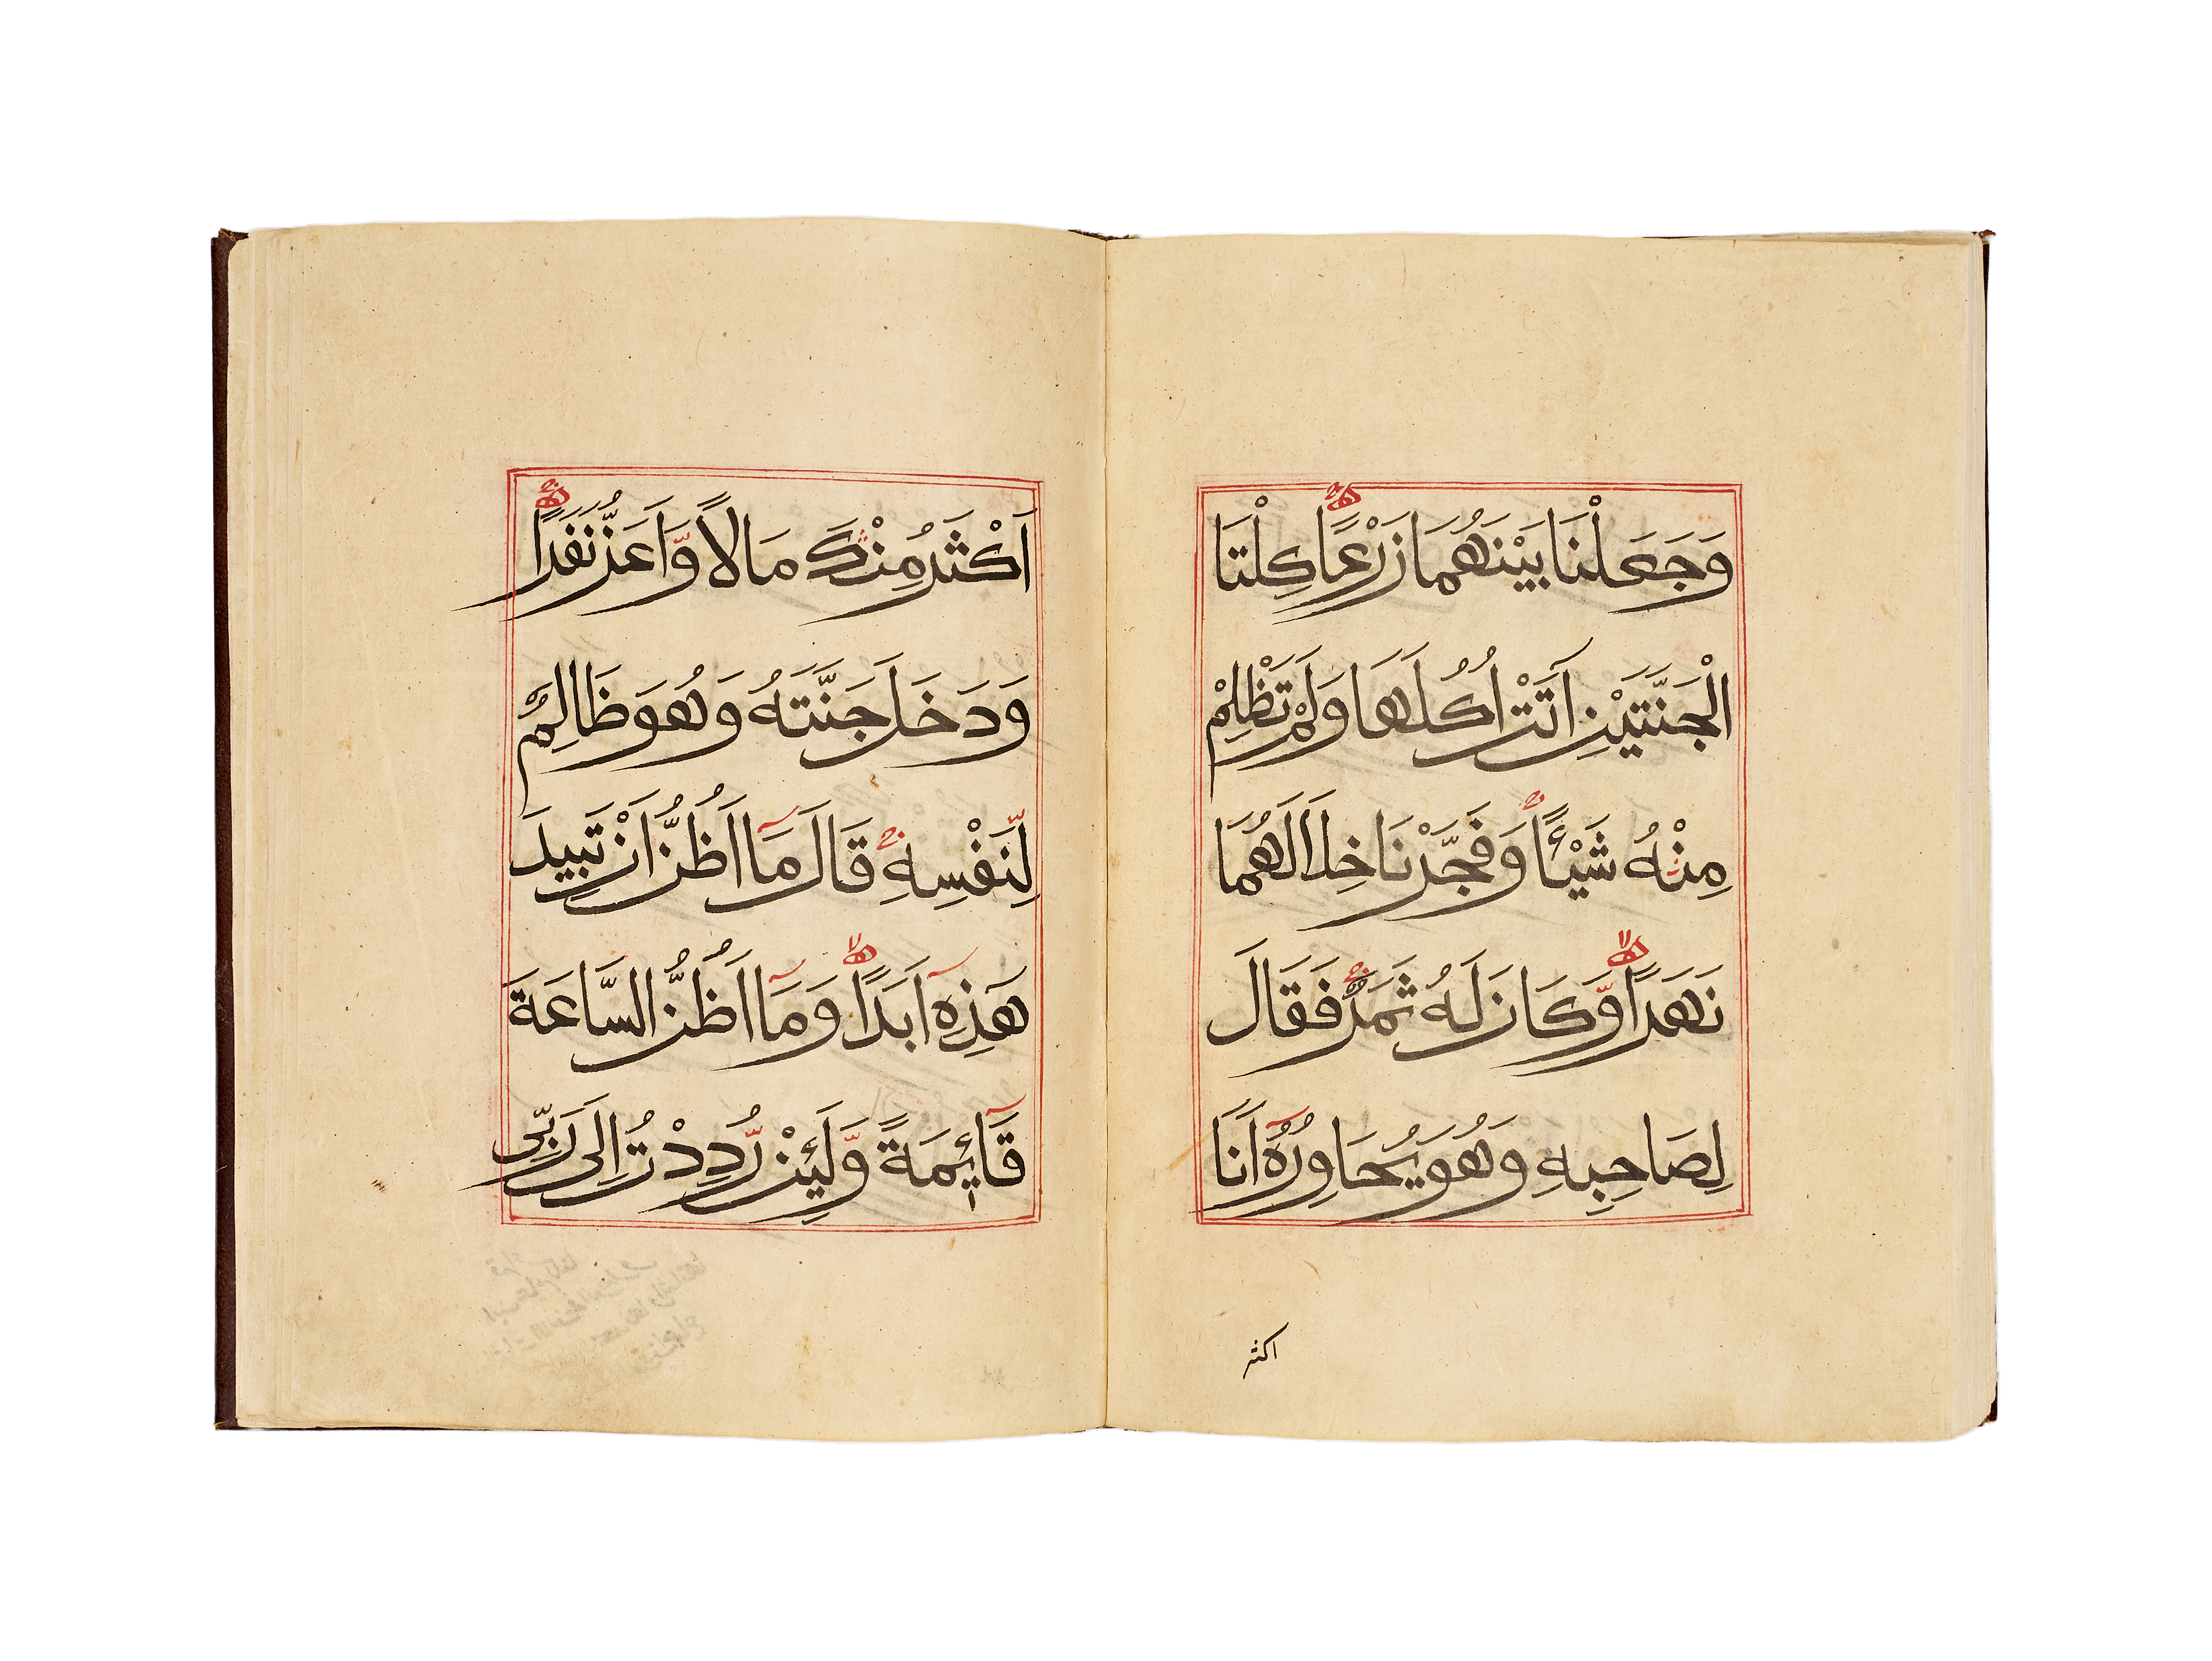 وَجَعَلْنَا بَيْنَهُمَا زَرْعًا كِلْتَا
الْجَنَّتَيْنِ اٰتَتْ اُكُلَهَا وَلَمْ تَظْلِمْ
مِنْهُ شَيْـًٔا وَفَجَّرْنَا خِلَالَهُمَا
نَهَرًا وَّكَانَ لَهُ ثَمَرٌ فَقَالَ
لِصَاحِبِهِ وَهُوَ يُحَاوِرُهُ اَنَا
اكثر
اَكْثَرُ مِنْكَ مَالًا وَّاَعَزُّ نَفَرًا
وَدَخَلَ جَنَّتَهُ وَهُوَ ظَالِمٌ
لِّنَفْسِهِ قَالَ مَا اَظُنُّ اَنْ تَبِيدَ
هَذِهِ اَبَدًا وَمَا اَظُنُّ السَّاعَةَ
قَائِمَةً وَّلَئِنْ رُّدِدْتُ اِلَى رَبِّى